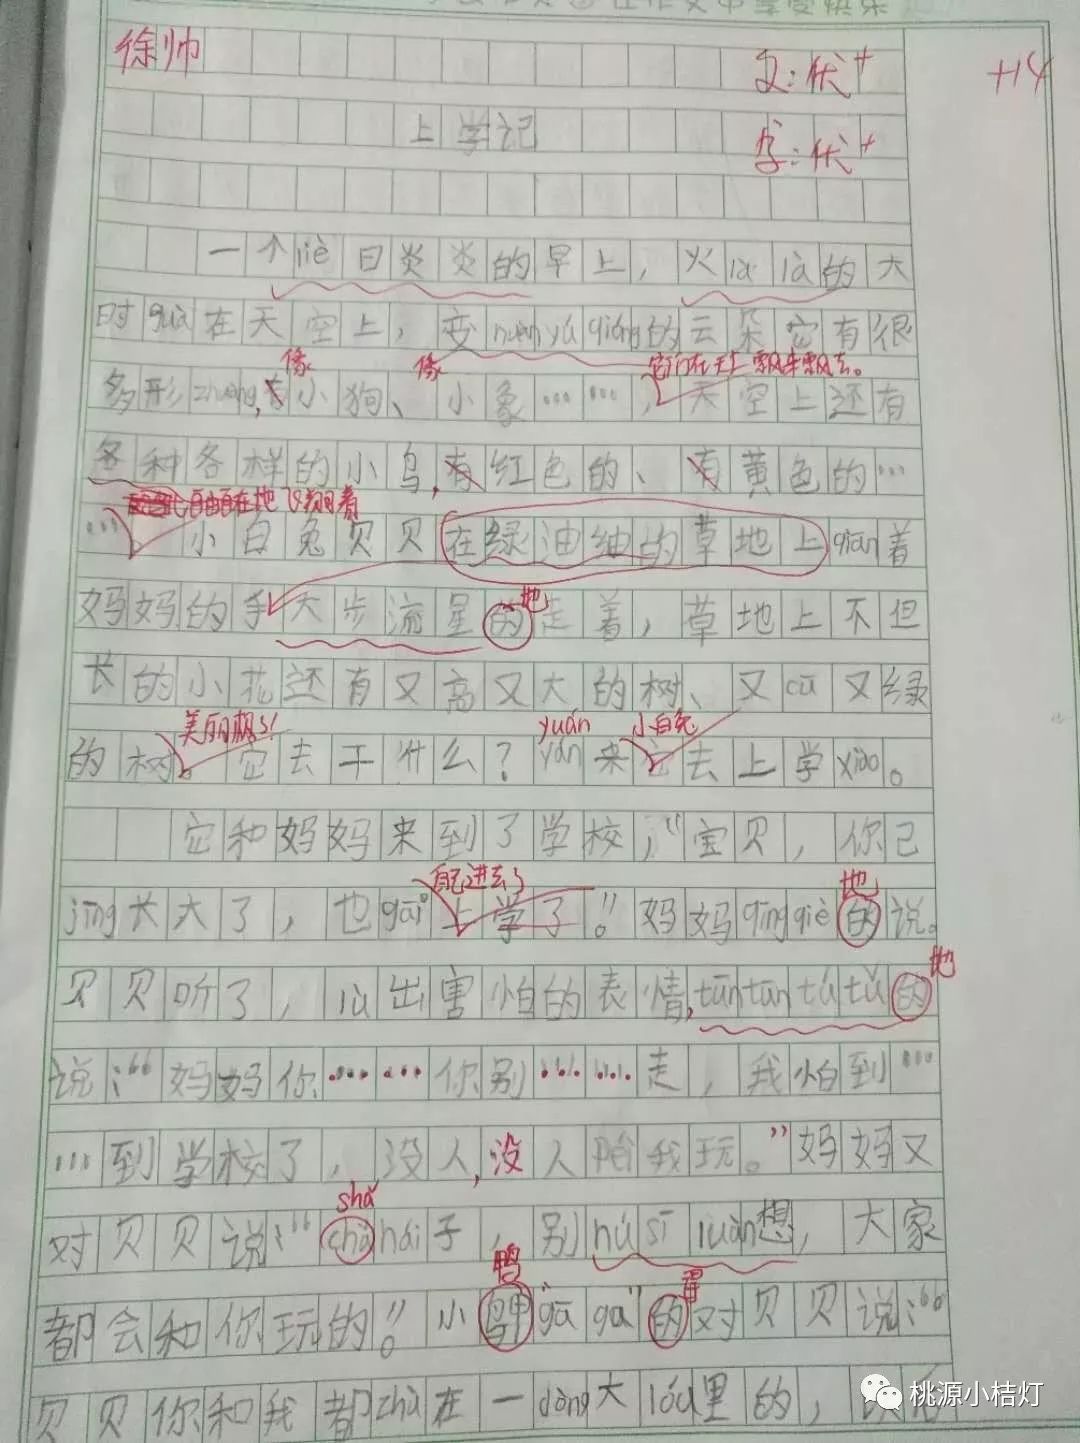 在作文中享受快乐
徐帅
文:优+
+14
上学记
字:优+
一个liè日炎炎的早上，火là là的大
时guà在天空上，变huàn yú qióng的云朵它有很
像 像 它们在天上飘来飘去。
多形zhuàng,有小狗、小象……，天空上还有
各种各样的小鸟,有红色的、有黄色的…
自由自在地飞翔着
…小白兔贝贝在绿油油的草地上qiān着
地
妈妈的手大步流星的走着，草地上不但
长的小花还有又高又大的树、又cū又绿
美丽极了! yuán 小白兔
的树。它去干什么？yán来它去上学xiào。
它和妈妈来到了学校，“宝贝，你已
自己进去了 地
jīng长大了，也gāi上学了”。妈妈qīng qiè的说。
地
贝贝听了，lù出害怕的表情,tūn tūn tǔ tǔ的
说：“妈妈你……你别……走，我怕到…
…到学校了，没人,没人陪我玩。”妈妈又
shǎ
对贝贝说：“chǎ hái子，别hú sī luàn想，大家
鸭
都会和你玩的”。小鸭“gā gā”的对贝贝说：“
贝贝你和我都zhù在一dòng大lóu里的，
桃源小桔灯